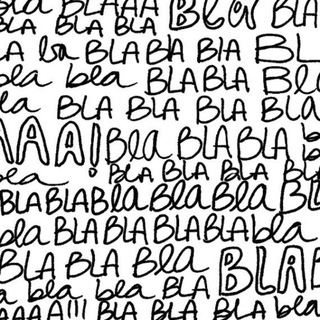 bla BLAAA Bla BLA
BLA BLA BLA
LA bla BLA BLA BLA BL
bla bla BLA BLA Bla
la BLA BLA BLA BLA
AAA! Bla BLA BLA b
bla BLA BLA BLA BLA
BLA BLA Bla Bla Bla BL
bla BLA BLA BLA BLA bla
BLA BLA Bla BLAB
a bla bla BLA
AAAA!!! BLA BLA BLA BLA